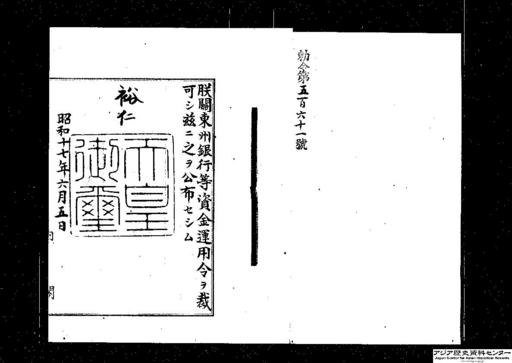 勅令第五百六十一號
朕關東州銀行等資金運用令ヲ裁
可シ茲ニ之ヲ公布セシム
裕仁
天皇
御璽
昭和十七年六月五日
内 閣
アジア歴史資料センター
Japan Center for Asian Historical Records